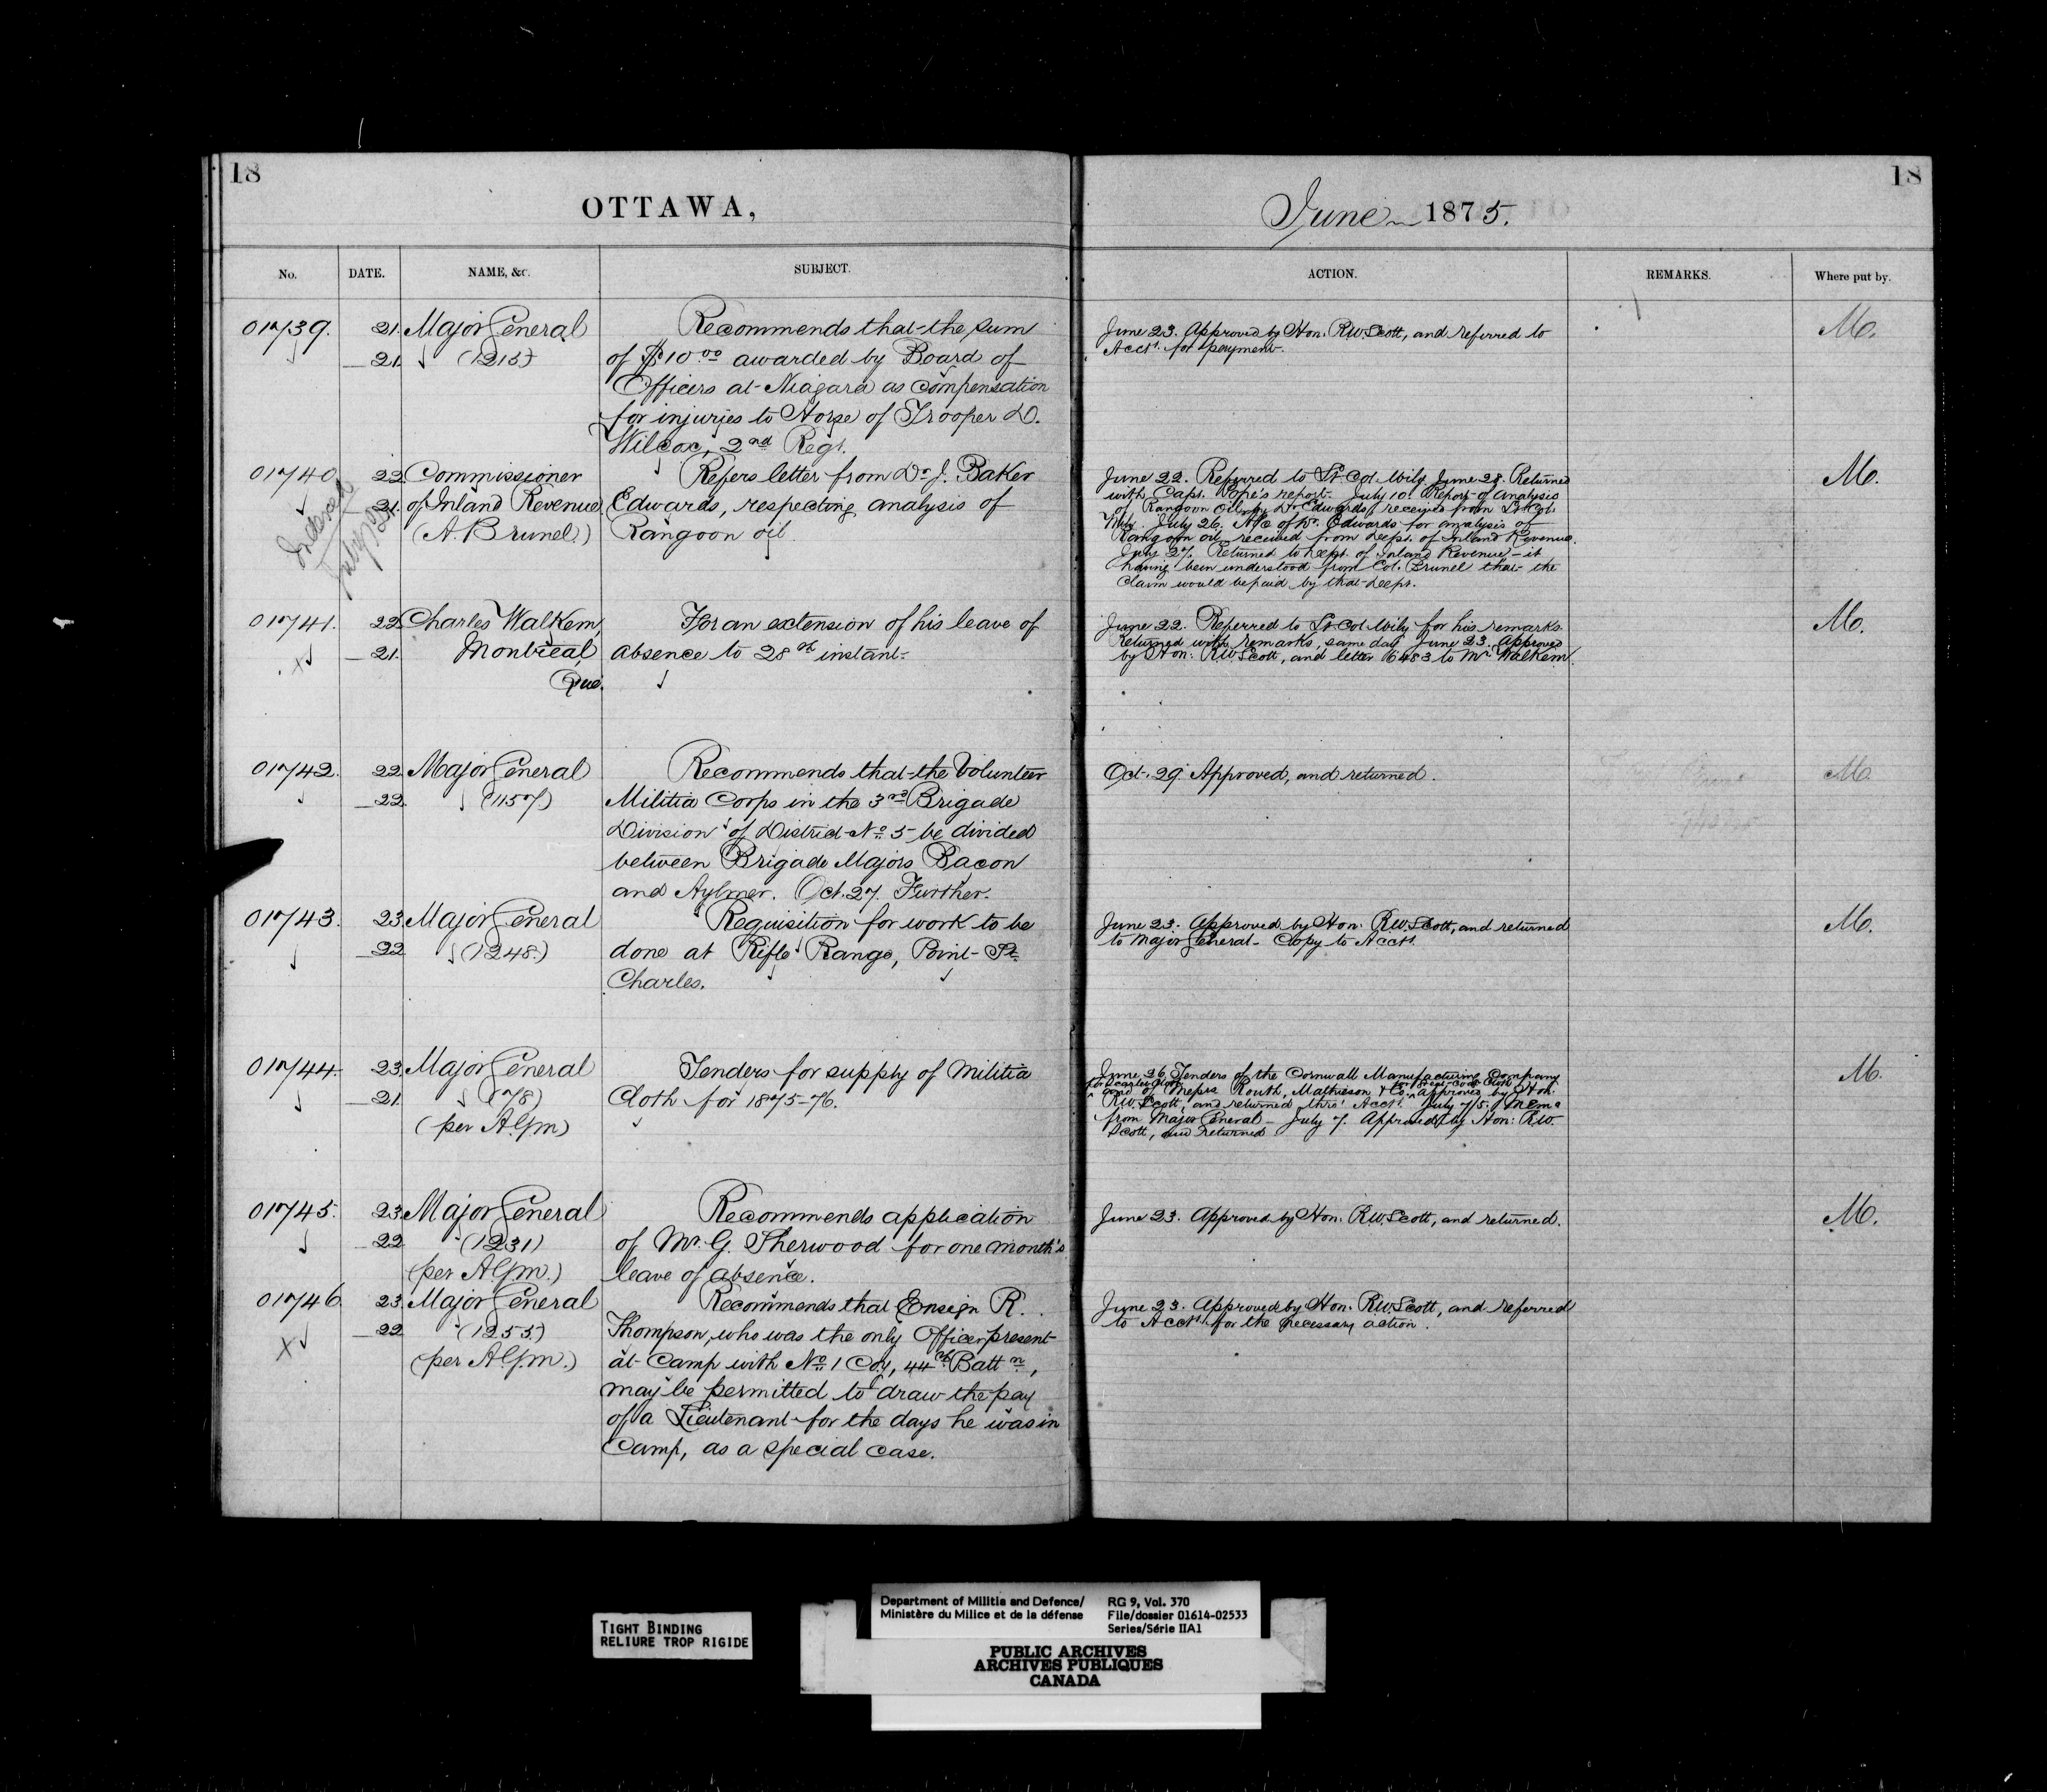 18
OTTAWA,
No. DATE. NAME, &c. SUBJECT.
01739. 21. Major General Recommends that the sum
21. (1215) of $10.00 awarded by Board of
Officers at Niagara as compensation
for injuries to Horse of Trooper D.
Wilcox, 2nd Regt.
01740 22. Commissioner Refers letter from Dr. J. Baker
21. of Inland Revenue Edwards, respecting analysis of
(A. Brunel) Rangoon oil.
Indexed
01741. 22. Charles Walkem For an extension of his leave of
x 21. Montreal, absence to 28th instant.
Que.
01742. 22. Major General Recommends that the Volunteer
22. (1157) Militia Corps in the 3rd Brigade
Division of District No. 5 be divided
between Brigade Majors Bacon
and Aylmer. Oct. 27. Further.
01743. 23. Major General Requisition for work to be
22 (1248.) done at Rifle Range, Point St.
Charles.
01744. 23. Major General Tenders for supply of Militia
21. (78) Cloth for 1875-76.
(per A.G.M)
01745. 23. Major General Recommends application
22 (1231) of Mr. G. Sherwood for one month's
(per A.G.M.) leave of absence.
01746. 23. Major General Recommends that Ensign R.
X 22 (1253) Thompson, who was the only Officer present
(per A.G.M.) at Camp with No. 1 Coy, 44th Battn.,
may be permitted to draw the pay
of a Lieutenant for the days he was in
Camp, as a special case.
18
June 1875.
ACTION. REMARKS. Where put by.
June 23. Approved by Hon. R.W. Scott, and referred to M.
Acct. for payment.
June 22. Referred to Lt. Col. Wily. June 28. Returned M.
with Capt. Pope's report. July 10. Report of analysis
of Rangoon Oil, by Dr. Edwards, received from Lt. Col.
Wily. July 26. A/c of Dr. Edwards for analysis of
Rangoon oil received from Dept. of Inland Revenue.
July 27. Returned to Dept. of Inland Revenue - it
having been understood from Col. Brunel that the
claim would be paid by that Dept.
June 22. Referred to Lt. Col. Wily for his remarks. M.
Returned with remarks, same day. June 23. Approved
by Hon: R.W. Scott, and letter 6483 to Mr. Walkem.
Oct. 29. Approved, and returned. M.
June 23. Approved by Hon: R.W. Scott, and returned M.
to Major General - Copy to Acct.
June 26 Tenders of the Cornwall Manufacturing Company M.
for Scarlet Cloth for Great-Coat Cloth
and of Messrs Routh, Mathieson & Co. Approved by Hon.
R.W. Scott, and returned thro' Acct. July 7/5. Memo
from Major General - July 7. Approved by Hon: R.W.
Scott, and returned
June 23. Approved by Hon: R.W. Scott, and returned. M.
June 23. Approved by Hon. R.W. Scott, and referred
to Acct. for the necessary action.
TIGHT BINDING
RELIURE TROP RIGIDE
Department of Militia and Defence/ RG 9, Vol. 370
Ministère du Milice et de la défense File/dossier 01614-02533
Series/Série IIA1
PUBLIC ARCHIVES
ARCHIVES PUBLIQUES
CANADA